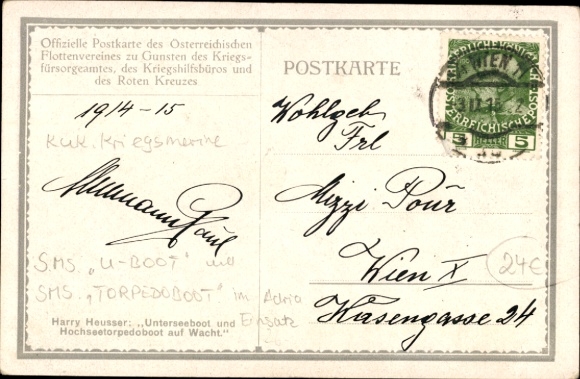 Offizielle Postkarte des Österreichischen
Flottenvereines zu Gunsten des Kriegs-
fürsorgeamtes, des Kriegshilfsbüros und
des Roten Kreuzes
POSTKARTE
1914-15
K.u.K. Kriegsmarine
Paul
SMS. „U-BOOT" und
SMS. „TORPEDOBOOT" im Adria
Einsatz
Harry Heusser: „Unterseeboot und
Hochseetorpedoboot auf Wacht."
Wohlgeb
Frl
Mizzi Pour
Wien X
Hasengasse 24
24€
WIEN
5 HELLER 5